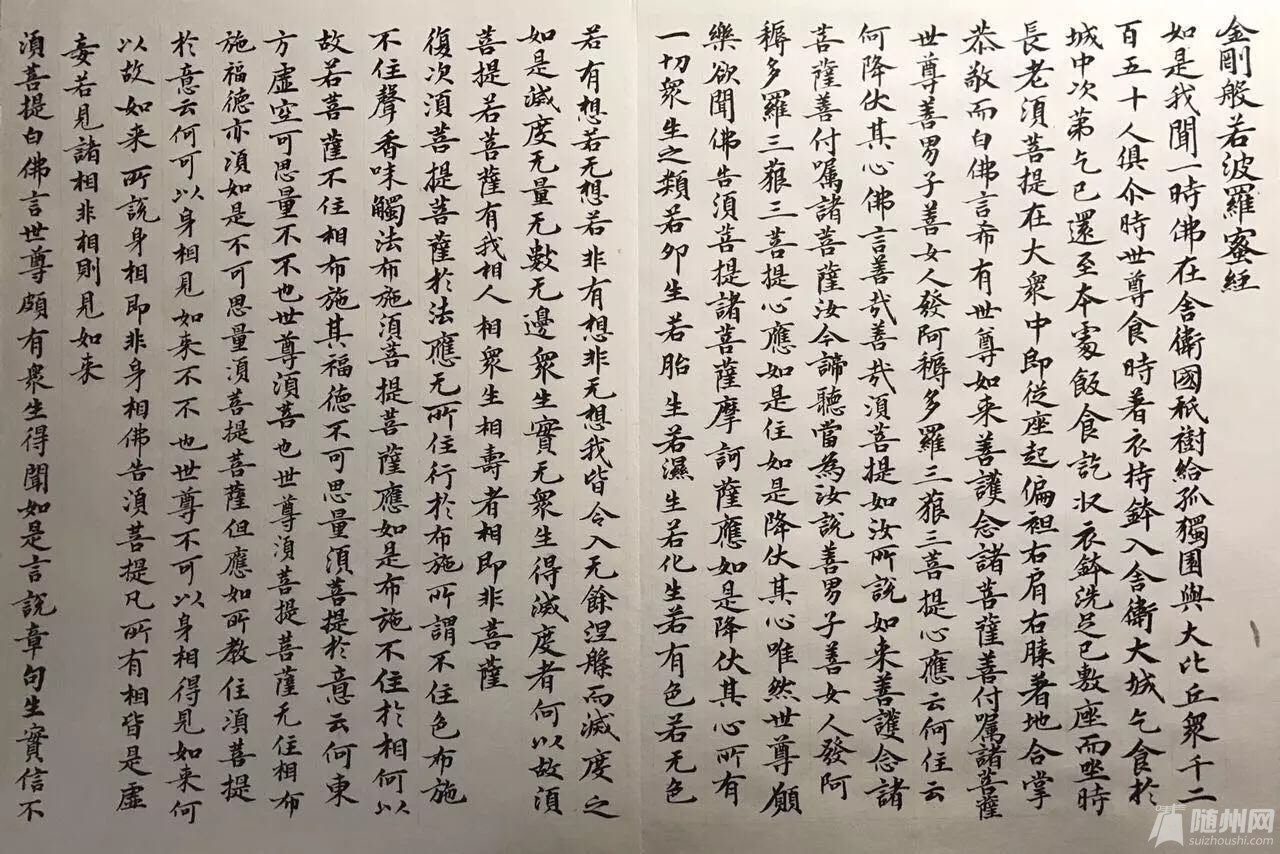 金剛般若波羅蜜經
如是我聞一時佛在舍衛國祇樹給孤獨園與大比丘衆千二
百五十人俱尒時世尊食時著衣持鉢入舍衛大城乞食於
城中次第乞已還至本處飯食訖収衣鉢洗足已敷座而坐時
長老須菩提在大衆中即從座起偏袒右肩右膝著地合掌
恭敬而白佛言希有世尊如来善護念諸菩薩善付嘱諸菩薩
世尊善男子善女人發阿耨多羅三藐三菩提心應云何住云
何降伏其心佛言善哉善哉須菩提如汝所說如来善護念諸
菩薩善付嘱諸菩薩汝今諦聽當為汝說善男子善女人發阿
耨多羅三藐三菩提心應如是住如是降伏其心唯然世尊願
樂欲聞佛告須菩提諸菩薩摩訶薩應如是降伏其心所有
一切衆生之類若卵生若胎生若濕生若化生若有色若无色
若有想若无想若非有想非无想我皆令入无餘涅槃而滅度之
如是滅度无量无數无邊衆生實无衆生得滅度者何以故須
菩提若菩薩有我相人相衆生相壽者相即非菩薩
復次須菩提菩薩於法應无所住行於布施所謂不住色布施
不住聲香味觸法布施須菩提菩薩應如是布施不住於相何以
故若菩薩不住相布施其福德不可思量須菩提於意云何東
方虛空可思量不不也世尊須菩也世尊須菩提菩薩无住相布
施福德亦須如是不可思量須菩提菩薩但應如所教住須菩提
於意云何可以身相見如来不不也世尊不可以身相得見如来何
以故如来所說身相即非身相佛告須菩提凡所有相皆是虛
妄若見諸相非相則見如来
須菩提白佛言世尊頗有衆生得聞如是言說章句生實信不
随州网
suizhoushi.com